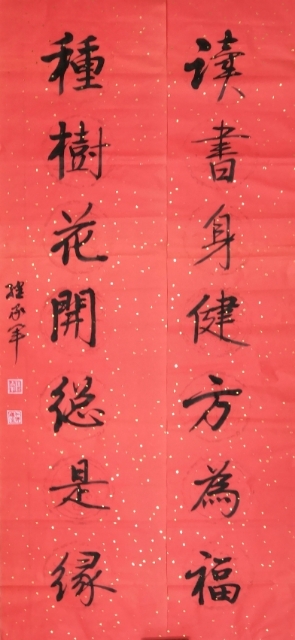 读書身健方為福
種樹花開總是缘